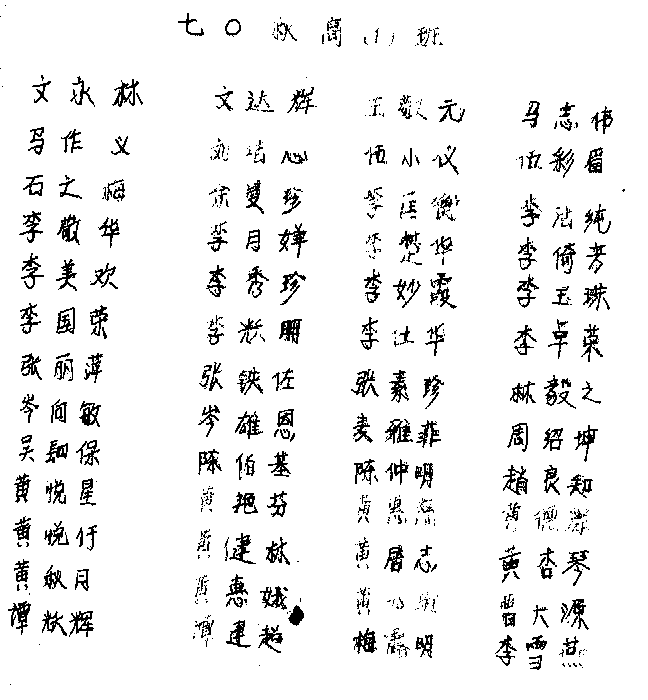 七〇秋高(1)班
文永林 文达辉 王敬元 马志伟
马作义 心 伍小仪 伍彩眉
石文梅 余曼珍 李 衡 李洁纯
李敬华 李月婵 李楚华 李倚芳
李美欢 李秀珍 李妙霞 李玉珠
李国荣 李秋明 李仕华 李卓荣
张丽萍 张铁佐 张素珍 林毅之
岑向敏 岑雄恩 麦雅菲 周绍坤
吴勤保 陈伯基 陈仲明 赵良知
黄悦星 黄艳芬 黄惠 黄德
黄悦仔 黄健林 黄居志 黄杏琴
黄秋月 黄惠娥 黄 曾大源
谭秋辉 谭建超 梅露明 李雪燕